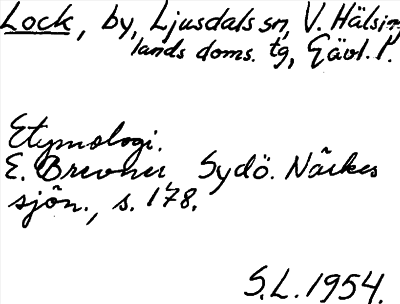 Lock, by, Ljusdals sn, V. Hälsing
lands doms. tg, Gävl. l.
Etymologi.
E. Brevner Sydö. Närkes
sjön., s. 178.
S.L. 1954.